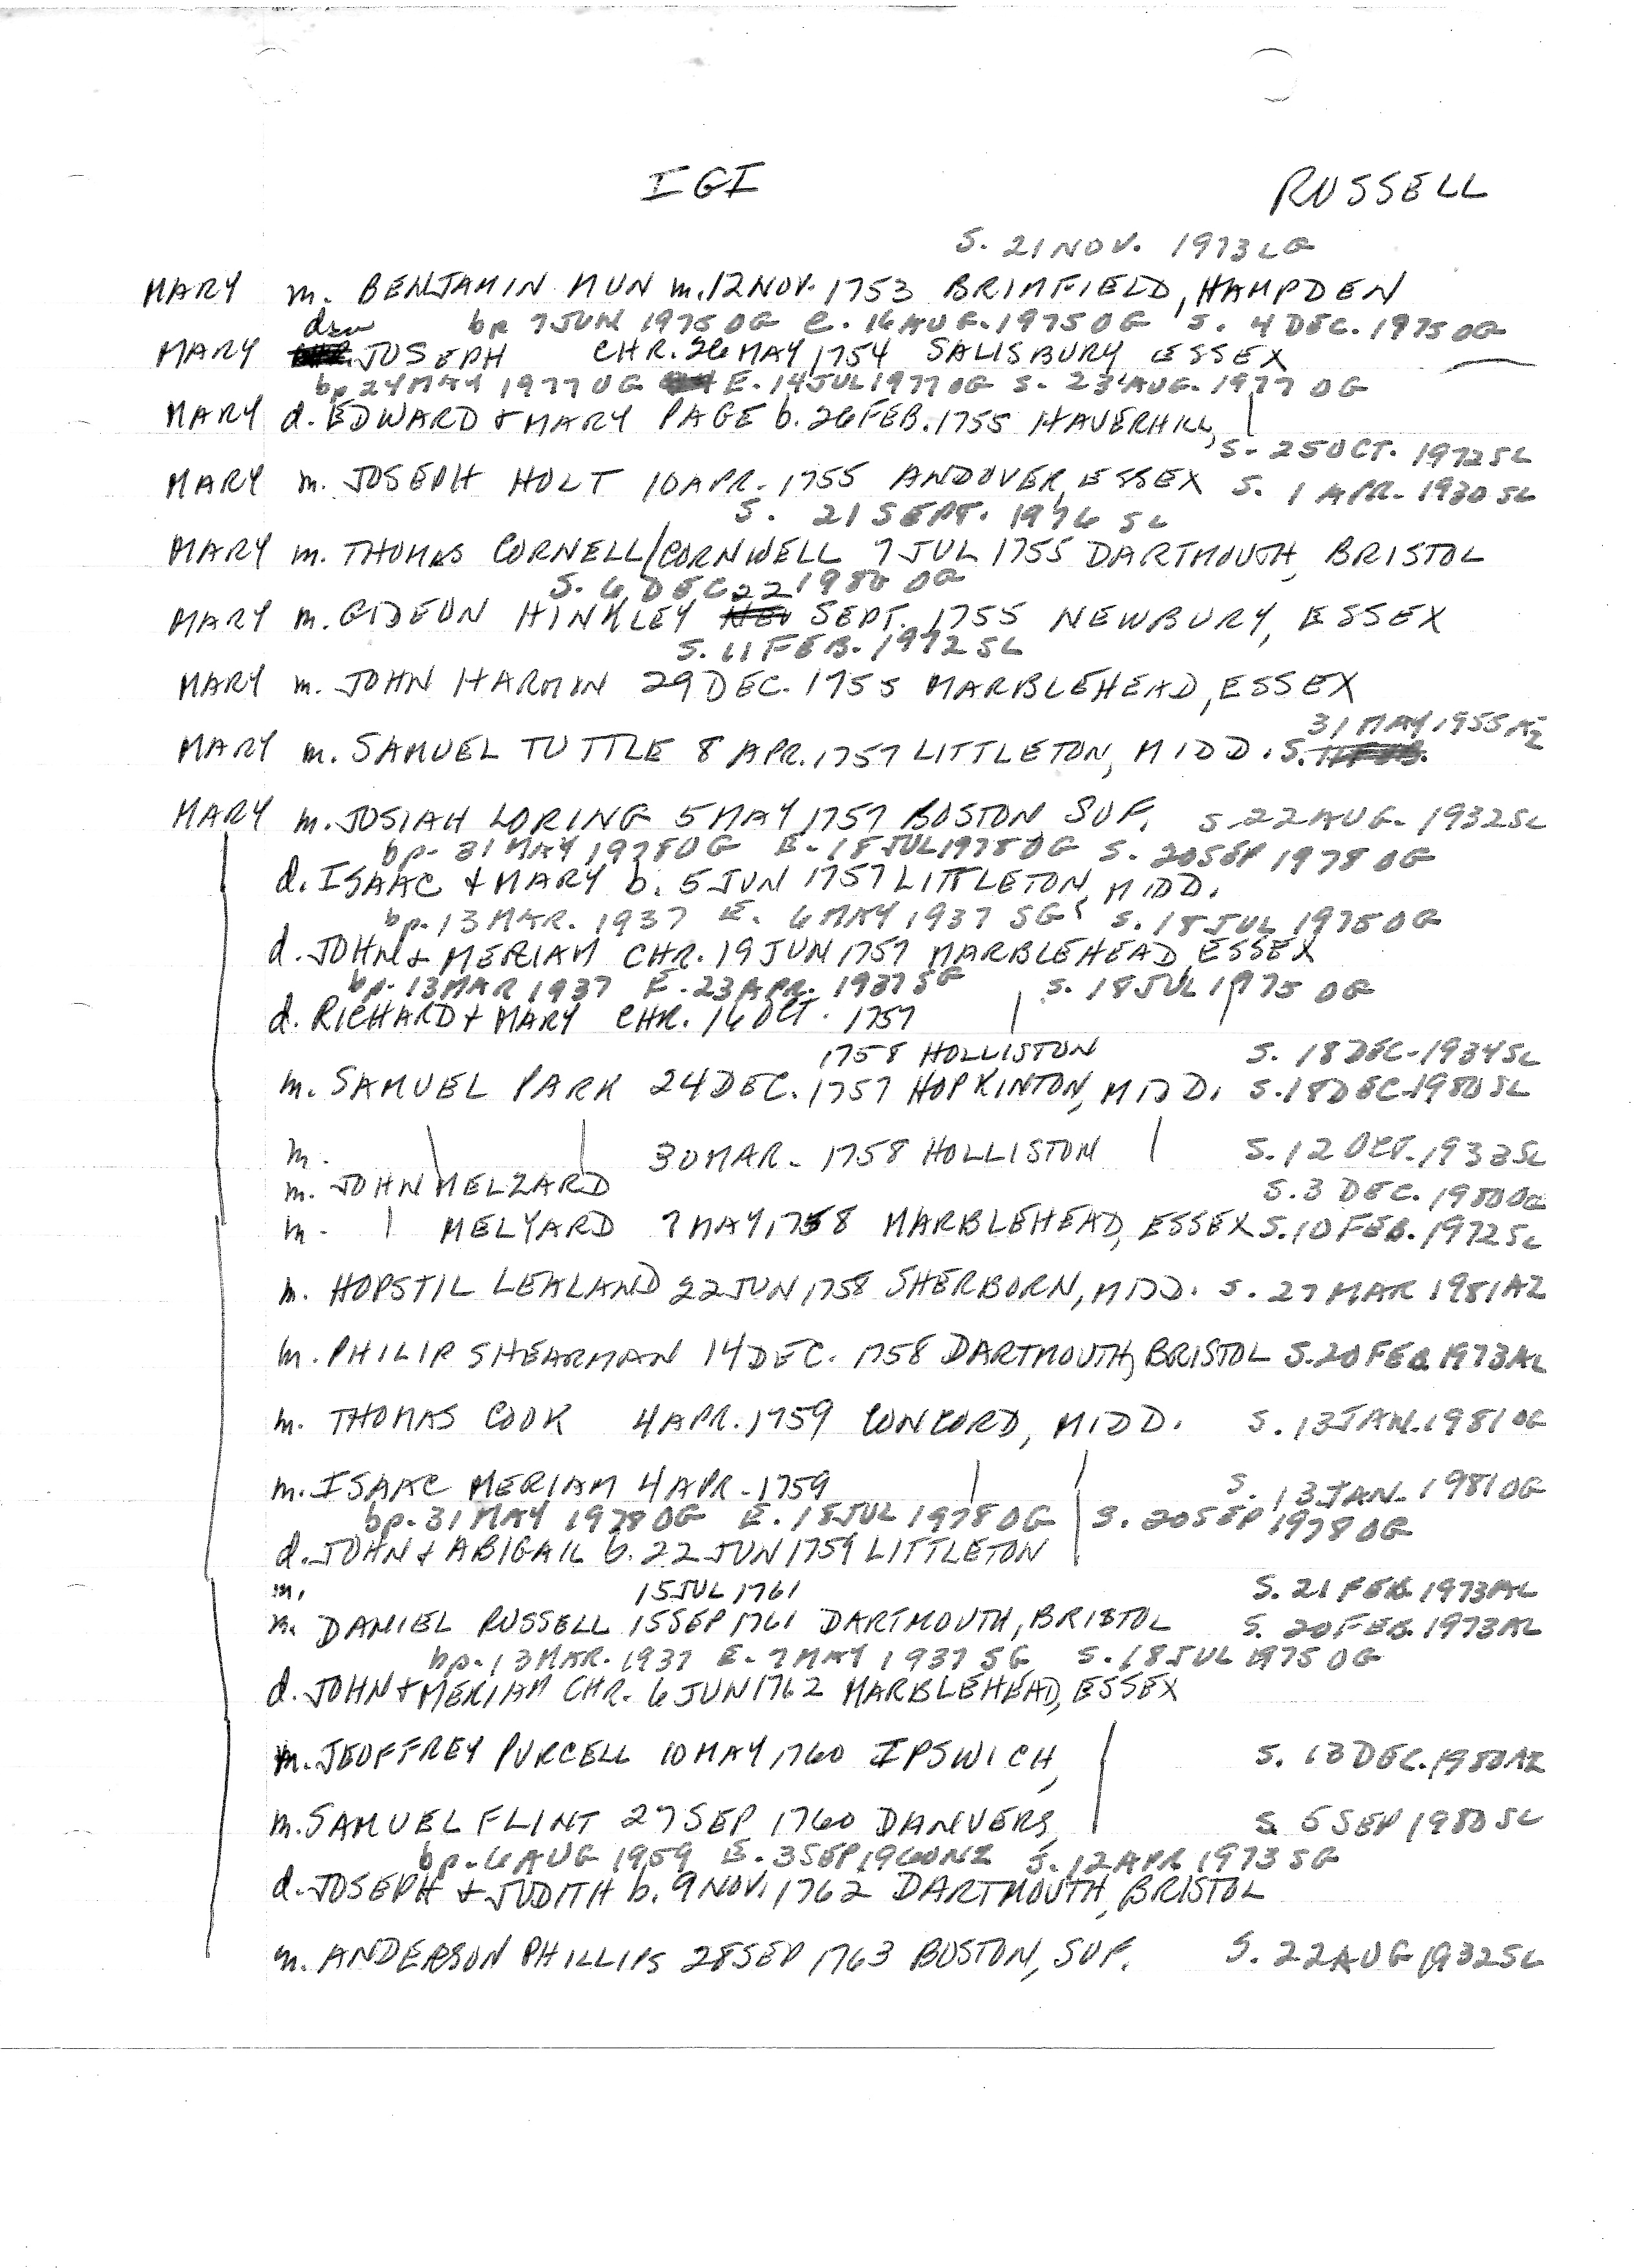 IGI RUSSELL
S. 21 NOV. 1973 LG
MARY m. BENJAMIN MUN m. 12 NOV. 1753 BRIMFIELD, HAMPDEN
bp 7 JUN 1975 OG E. 16 AUG. 1975 OG S. 4 DEC. 1975 OG
MARY JOSEPH CHR. 26 MAY 1754 SALISBURY ESSEX
bp 24 MAY 1977 OG E. 14 JUL 1977 OG S. 23 AUG. 1977 OG
MARY d. EDWARD & MARY PAGE b. 26 FEB. 1755 HAVERHILL,
S. 25 OCT. 1972 SL
MARY m. JOSEPH HOLT 10 APR. 1755 ANDOVER, ESSEX S. 1 APR. 1930 SL
S. 21 SEPT. 1976 SL
MARY m. THOMAS CORNELL/CORNWELL 7 JUL 1755 DARTMOUTH, BRISTOL
S. 6 DEC 1980 OG
MARY m. GIDEON HINKLEY 22 SEPT. 1755 NEWBURY, ESSEX
S. 11 FEB. 1972 SL
MARY m. JOHN HARMIN 29 DEC. 1755 MARBLEHEAD, ESSEX
31 MAY 1955 AZ
MARY m. SAMUEL TUTTLE 8 APR. 1757 LITTLETON, MIDD. S.
MARY m. JOSIAH LORING 5 MAY 1757 BOSTON SUF. S. 22 AUG. 1932 SL
bp. 31 MAY 1978 OG E. 18 JUL 1978 OG S. 20 SEP 1978 OG
d. ISAAC & MARY b. 5 JUN 1757 LITTLETON, MIDD.
bp. 13 MAR. 1937 E. 6 MAY 1937 SG S. 18 JUL 1975 OG
d. JOHN & MERIAM CHR. 19 JUN 1757 MARBLEHEAD, ESSEX
bp. 13 MAR 1937 E. 23 APR. 1937 SG S. 18 JUL 1975 OG
d. RICHARD & MARY CHR. 16 OCT. 1757
1758 HOLLISTON S. 18 DEC. 1934 SL
m. SAMUEL PARK 24 DEC. 1757 HOPKINTON, MIDD. S. 18 DEC. 1980 SL
m. 30 MAR. 1758 HOLLISTON S. 12 OCT. 1933 SL
m. JOHN MELZARD S. 3 DEC. 1980 OG
m. MELYARD 7 MAY 1758 MARBLEHEAD, ESSEX S. 10 FEB. 1972 SL
m. HOPSTIL LEALAND 22 JUN 1758 SHERBORN, MIDD. S. 27 MAR 1981 AZ
m. PHILIP SHEARMAN 14 DEC. 1758 DARTMOUTH, BRISTOL S. 20 FEB 1973 AL
m. THOMAS COOK 4 APR. 1759 CONCORD, MIDD. S. 13 JAN. 1981 OG
m. ISAAC MERIAM 4 APR. 1759 S. 13 JAN. 1981 OG
bp. 31 MAY 1978 OG E. 18 JUL 1978 OG S. 20 SEP 1978 OG
d. JOHN & ABIGAIL b. 22 JUN 1759 LITTLETON
m. 15 JUL 1761 S. 21 FEB. 1973 AL
m. DANIEL RUSSELL 15 SEP 1761 DARTMOUTH, BRISTOL S. 20 FEB. 1973 AL
bp. 13 MAR. 1937 E. 7 MAY 1937 SG S. 18 JUL 1975 OG
d. JOHN & MERIAM CHR. 6 JUN 1762 MARBLEHEAD, ESSEX
m. JEOFFREY PURCELL 10 MAY 1760 IPSWICH, S. 13 DEC. 1980 AZ
m. SAMUEL FLINT 27 SEP 1760 DANVERS, S. 5 SEP 1980 SL
bp. 6 AUG 1959 E. 3 SEP 1960 NZ S. 12 APR 1973 SG
d. JOSEPH & JUDITH b. 9 NOV. 1762 DARTMOUTH, BRISTOL
m. ANDERSON PHILLIPS 28 SEP 1763 BOSTON, SUF. S. 22 AUG 1932 SL